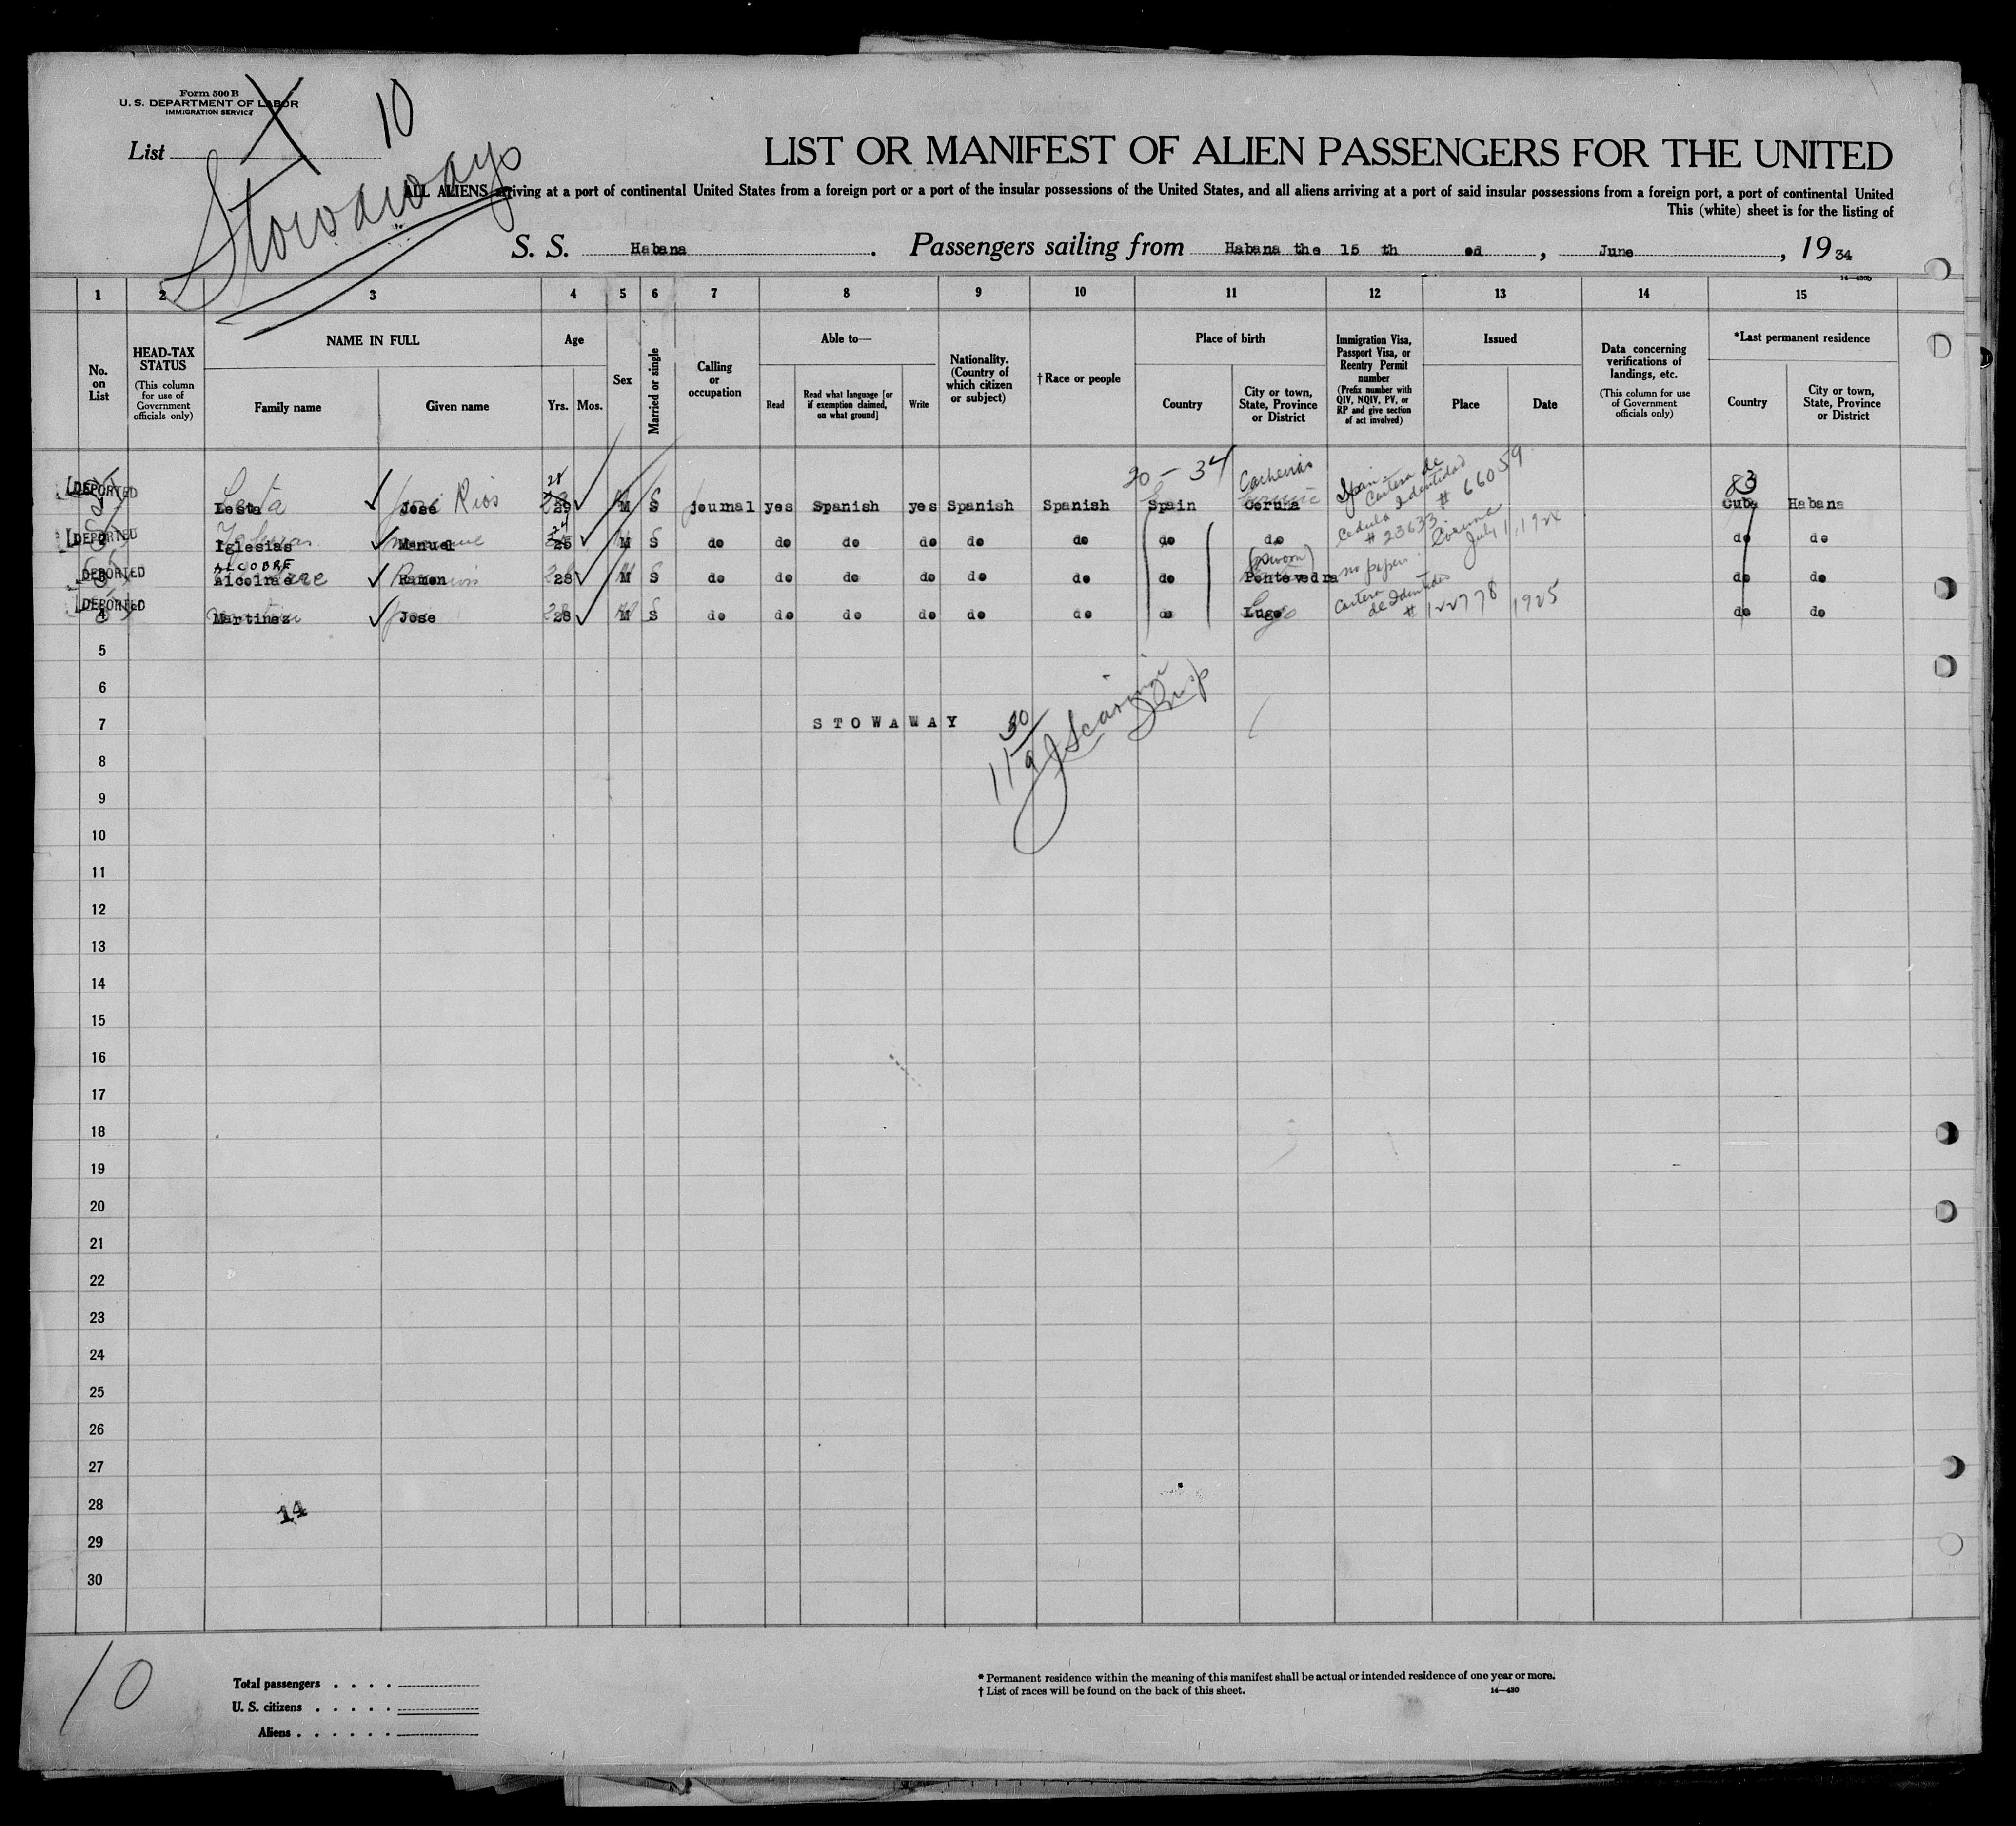 Form 500 B
U. S. DEPARTMENT OF LABOR
IMMIGRATION SERVICE
List
10
Stowaways
LIST OR MANIFEST OF ALIEN PASSENGERS FOR THE UNITED
ALL ALIENS arriving at a port of continental United States from a foreign port or a port of the insular possessions of the United States, and all aliens arriving at a port of said insular possessions from a foreign port, a port of continental United
This (white) sheet is for the listing of
S. S. Habana. Passengers sailing from Habana the 15 th ed, June, 1934
14—430b
1 2 3 4 5 6 7 8 9 10 11 12 13 14 15
No. on List
HEAD-TAX STATUS
(This column for use of Government officials only)
NAME IN FULL
Family name
Given name
Age
Yrs. Mos.
Sex
Married or single
Calling or occupation
Able to—
Read
Read what language [or if exemption claimed, on what ground]
Write
Nationality. (Country of which citizen or subject)
† Race or people
Place of birth
Country
City or town, State, Province or District
Immigration Visa, Passport Visa, or Reentry Permit number
(Prefix number with QIV, NQIV, PV, or RP and give section of act involved)
Issued
Place
Date
Data concerning verifications of landings, etc.
(This column for use of Government officials only)
*Last permanent residence
Country
City or town, State, Province or District
20 - 34
83
DEPORTED Lesta José Rios 28 29 M S journal yes Spanish yes Spanish Spanish Spain Coruna Spain Cartera de Identidad # 66059 Cuba Habana
DEPORTED Iglesias Manuel 25 M S do do do do do do do do Cedula # 23633 Coruna July 11, do do
ALCOBRE
DEPORTED 3 Ramon 28 M S do do do do do do do Pontevedra no paper do do
DEPORTED 4 Martinez Jose 28 M S do do do do do do do Lugo Cartera de Identidad # 122778 1925 do do
5
6
7 STOWAWAY
8
9
10
11
12
13
14
15
16
17
18
19
20
21
22
23
24
25
26
27
28
14
29
30
10
Total passengers . . . .
U. S. citizens . . . . .
Aliens . . . . . .
* Permanent residence within the meaning of this manifest shall be actual or intended residence of one year or more.
† List of races will be found on the back of this sheet.
14—430